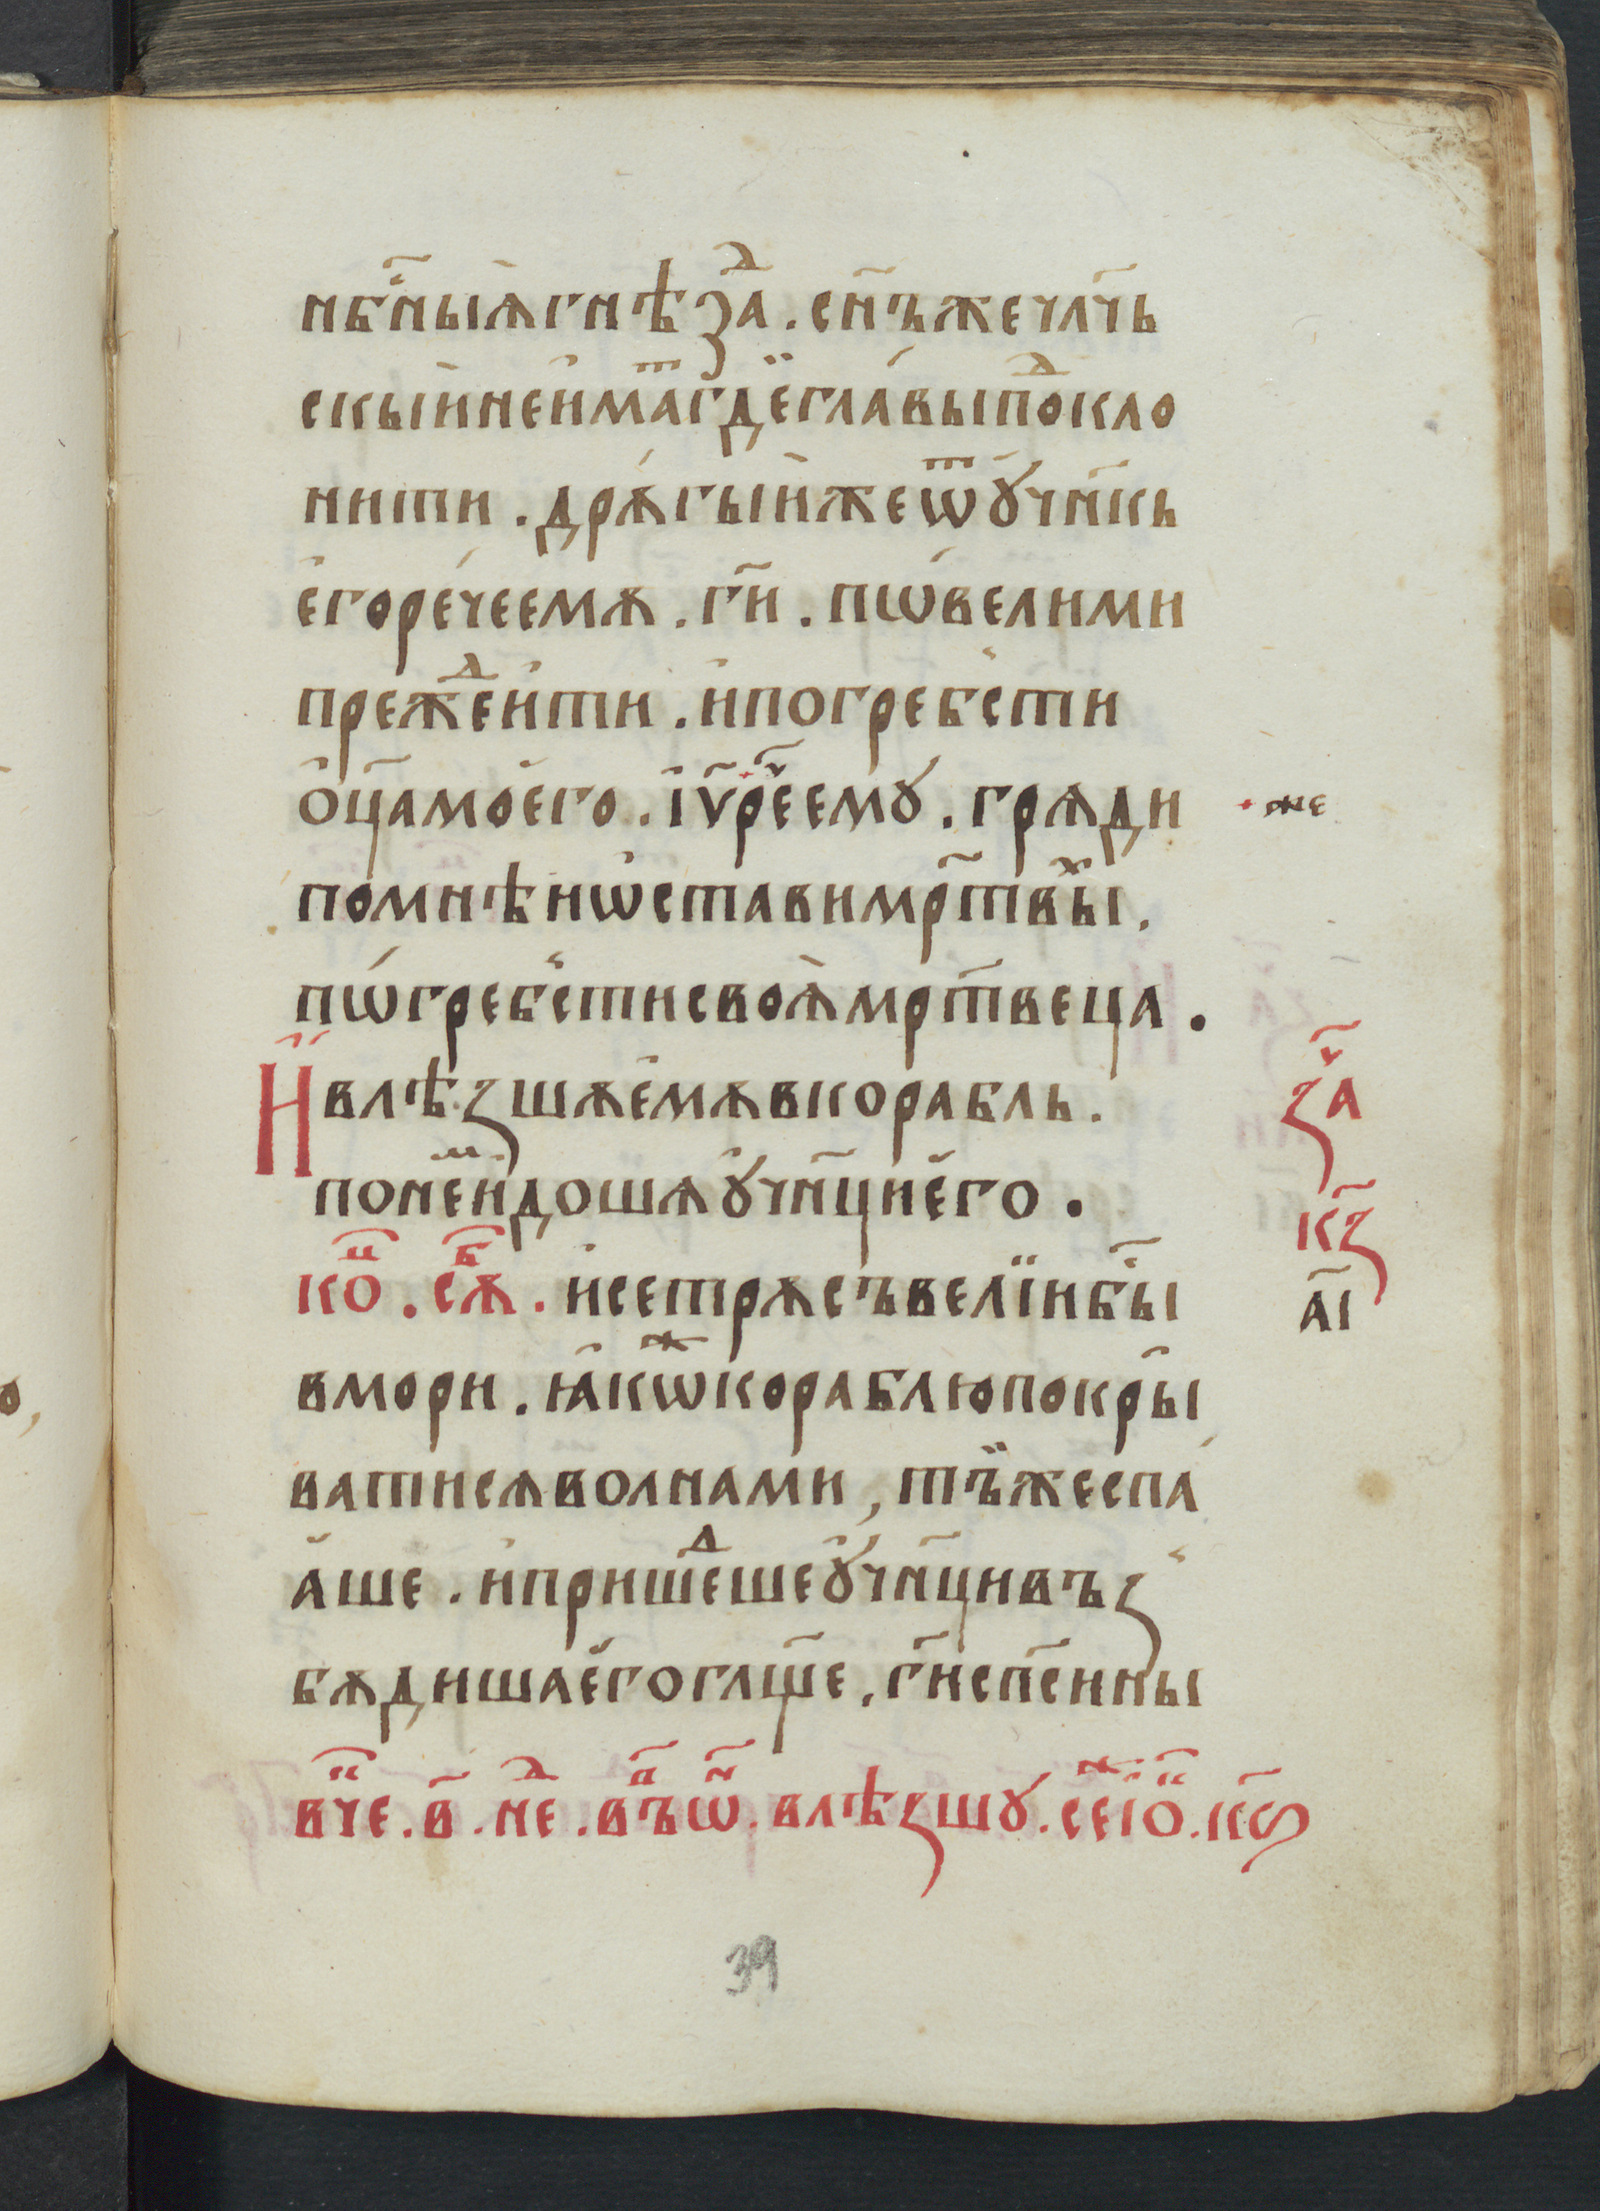 нб҃ныѧгнѣзⷣа . сн҃ъжечл҃чь
скыйнеиматⷮгдѣглавыпоⷣкло
нити . дрѫгыйжеѿꙋчн҃кь
его́речеемѫ . гн҃и . пѡвелими
прежеⷣити . ипогребсти
ѻц҃амоего . іѵ҃рееⷨмꙋ . грѧди
помнѣиѡставимр҃твыⷯ .
пѡгребстисвоѧмр҃твеца .
Ивлѣзшѫемѫвкорабль .
понеⷨидошѧꙋчн҃циего .
коⷩ . сѫⷠ . исетрѫсъвелїибы҃
вмори . ꙗкѡⷤкораблюпокры
ватисѧволнами , тъйжеспа
аше . ипришеⷣшеꙋчн҃цивъз
бѫдишаегоглщ҃е . гн҃исп҃сины
вчеⷩ . в҃ . неⷣ . въⷫѡⷩ . влѣзшꙋ . сеⷤіоⷩ . кѕ҃
же
за҃
кз҃
аі҃
39